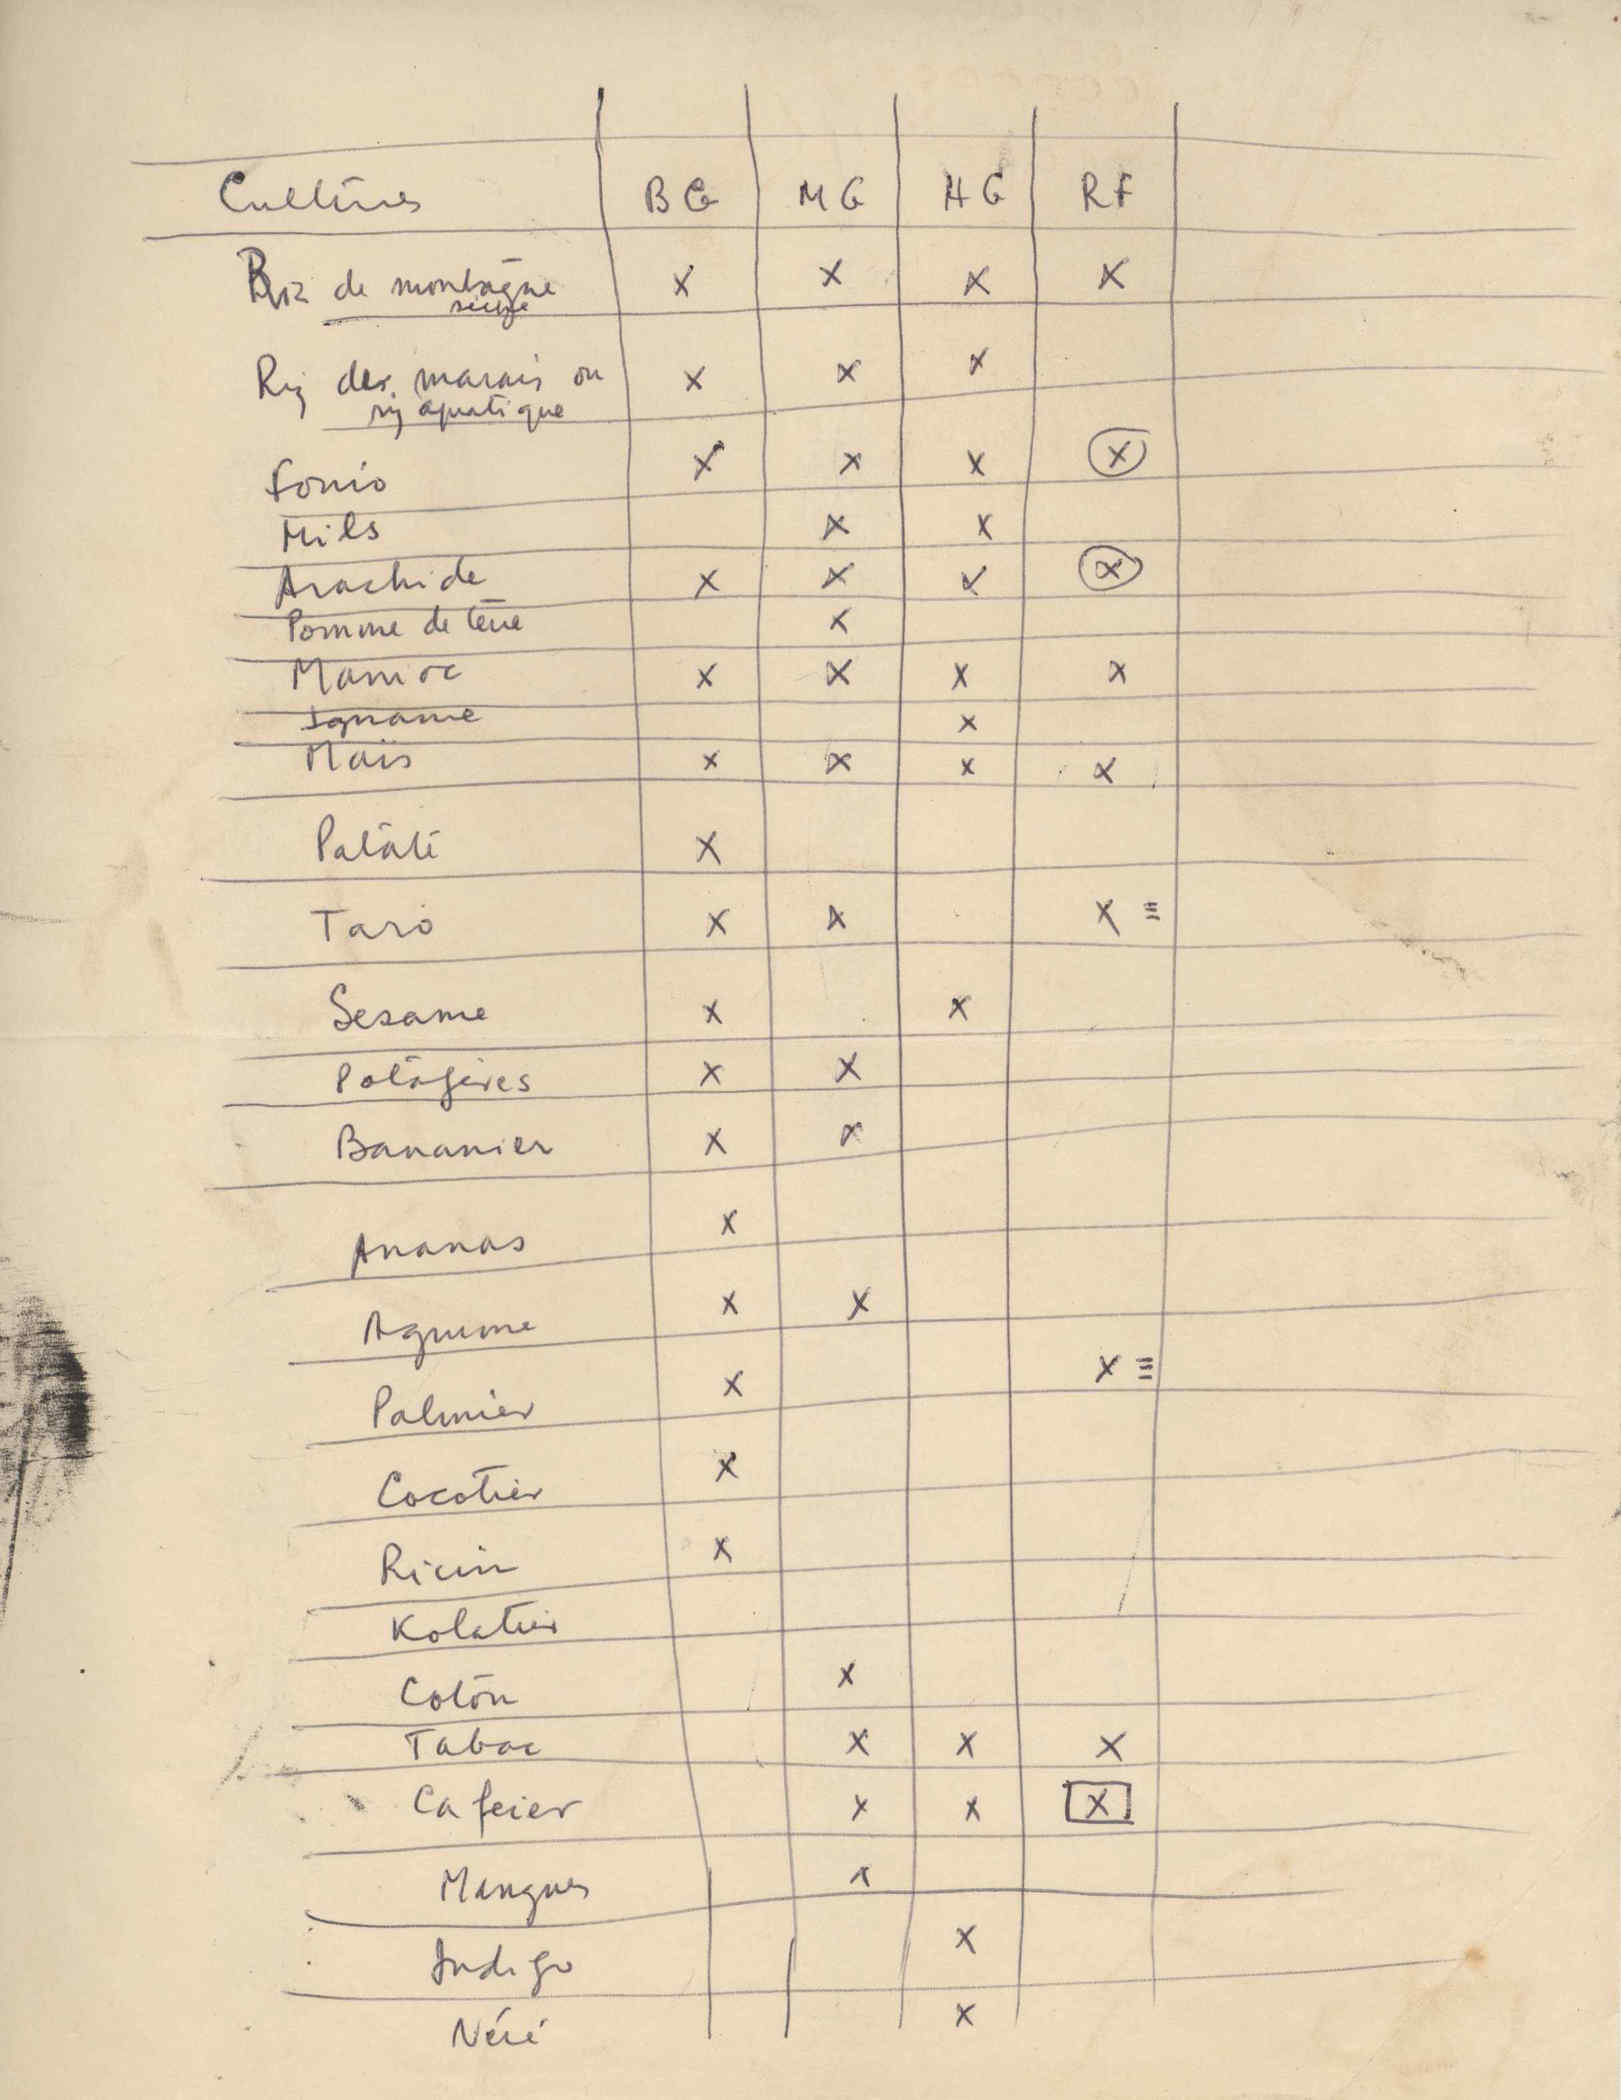 Cultures BG MG HG RF
Riz de montagne x x x x
Riz des marais ou x x x
riz aquatique
Fonio x x x x
Mils x x
Arachide x x x x
Pomme de terre x
Manioc x x x x
Igname x
Maïs x x x x
Patate x
Taro x x x ≡
Sesame x x
Potagères x x
Bananier x x
Ananas x
Agrume x x
Palmier x x ≡
Cocotier x
Ricin x
Kolatier
Coton x
Tabac x x x
Cafeier x x x
Mangues x
Indigo x
Néré x